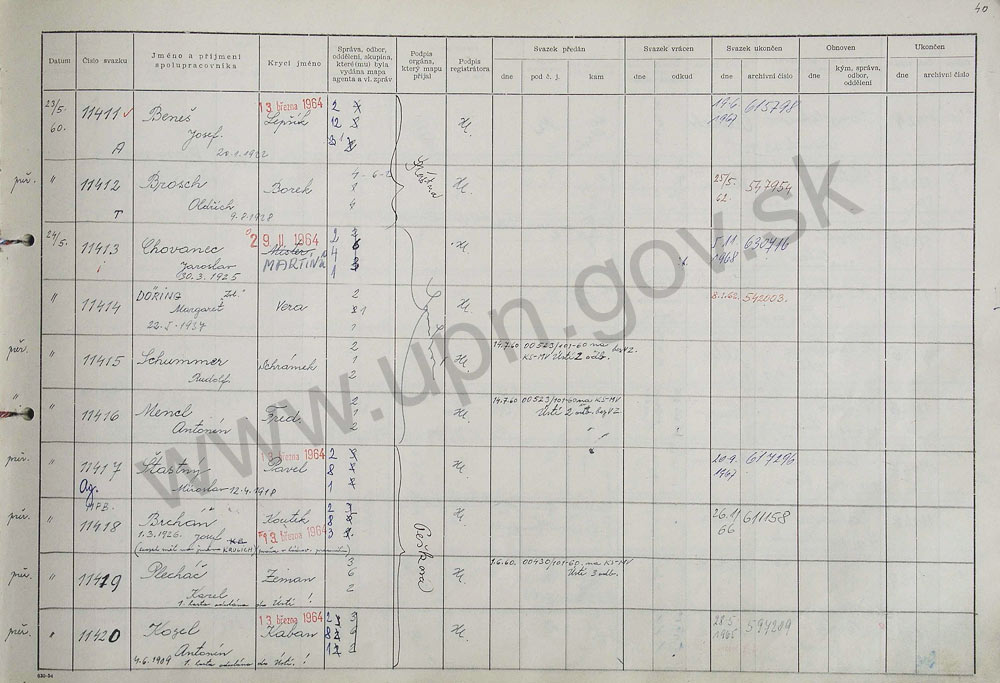 40
Datum
Číslo svazku
Jméno a příjmení spolupracovníka
Krycí jméno
Správa, odbor, oddělení, skupina, které(mu) byla vydána mapa agenta a vl. zpráv
Podpis orgána, který mapu přijal
Podpis registrátora
Svazek předán
dne
pod č. j.
kam
Svazek vrácen
dne
odkud
Svazek ukončen
dne
archivní číslo
Obnoven
dne
kým, správa, odbor, oddělení
Ukončen
dne
archivní číslo
23/5. 60. 11411 Beneš 13. března 1964 2
Josef. Lepšík 12
A 20.1.1922
19.6. 1967 615798
přer. " 11412 Brosch Borek 4-6-2
Oldřich 8
T 9.8.1928 4
25/5. 62. 547954
24/5. 11413 Chovanec 29. II 1964 2
Jaroslav MARTINA 4
30.3.1925 1
5.11. 1968 630716
" 11414 DÖRING Vera 2
Margaret
22.5.1927 1
8.1.62. 542003.
přer. " 11415 Schummer Schrámek 2
Rudolf. 1
2
14.7.60 00523/101-60 na
KS-MV Ústí 2 odb. bez VZ.
" " 11416 Mencl Fred. 2
Antonín 1
2
14.7.60 00523/101-60 na KS-MV
Ústí 2 odb. bez VZ
přer. " 11417 Šťastný 13. března 1964 2
Pavel 8
Ag. Miroslav 12.4.1918 1
20.9. 1967 617296
přer. " 11418 Brcháň Koutek 2
1.3.1926. Josef 13. března 1964 8
3
26.1/66 611158
přer. " 11419 Plecháč Zeman 3
Karel 6
1. karta odeslána do Ústí! 2
1.6.60. 00430/101-60. na KS-MV
Ústí 3 odb.
přer. " 11420 Kozel 13. března 1964
Antonín Kaban
4.6.1909 1. karta odeslána do Ústí!
28.5 1965 597209
Pešková
630-54
www.upn.gov.sk